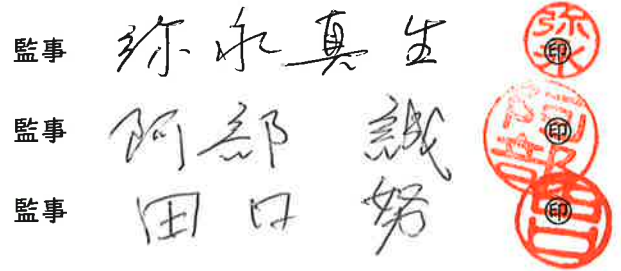 監事 弥永真生 ㊞
監事 阿部 誠 ㊞
監事 田口 努 ㊞